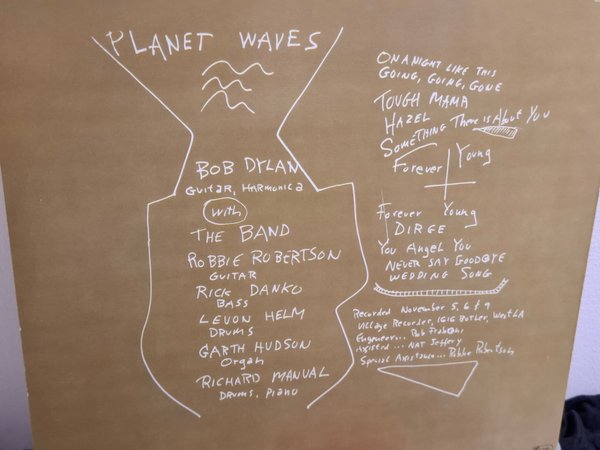 PLANET WAVES
BOB DYLAN
GUITAR, HARMONICA
with
THE BAND
ROBBIE ROBERTSON
GUITAR
RICK DANKO
BASS
LEVON HELM
DRUMS
GARTH HUDSON
Organ
RICHARD MANUAL
DRUMS, PIANO
ON A NIGHT LIKE THIS
GOING, GOING, GONE
TOUGH MAMA
HAZEL
SOMETHING There is About You
Forever Young
Forever Young
DIRGE
You Angel You
NEVER SAY GOODBYE
WEDDING SONG
Recorded November 5, 6 & 9
Village Recorder, 1616 Butler, West LA
Engineer... Rob Fraboni
Assisted... NAT Jeffery
Special Assistance... Robbie Robertson